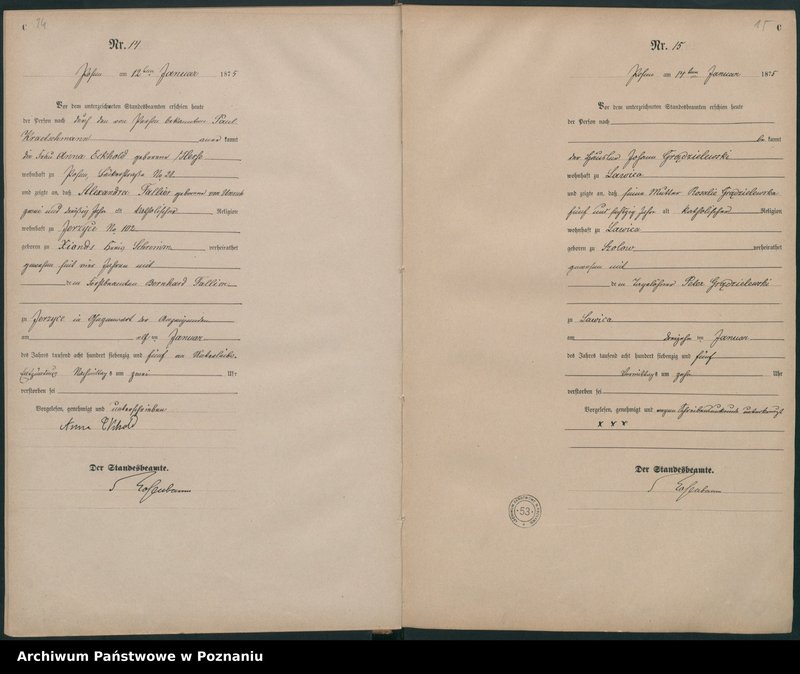 C 14
Nr. 14
Posen am 12ten Januar 1875
Vor dem unterzeichneten Standesbeamten erschien heute
der Person nach durch den von Person bekannten Paul
Kraetschmann anerkannt
die Frau Anna Eckhold geborene
wohnhaft zu Posen, Bäckerstraße No
und zeigte an, daß Alexandra Fallier geborene von
zwei und dreißig Jahr alt katholischer Religion
wohnhaft zu Jerzyce No 102
geboren zu Xions Kreis Schrimm verheirathet
gewesen seit vier Jahren mit
dem Bernhard Fallier
zu Jerzyce in Gegenwart der Anzeigenden
am elften Januar
des Jahres tausend acht hundert siebenzig und fünf an
Nachmittags um zwei Uhr
verstorben sei
Vorgelesen, genehmigt und unterschrieben
Anna Eckhold
Der Standesbeamte.
15 C
Nr. 15
Posen am 14ten Januar 1875
Vor dem unterzeichneten Standesbeamten erschien heute
der Person nach
bekannt
der Häusler Johann Grądzielewski
wohnhaft zu Lawica
und zeigte an, daß seine Mutter Rosalie Grądzielewska
fünf und Jahr alt katholischer Religion
wohnhaft zu Lawica
geboren zu verheirathet
gewesen mit
dem Tagelöhner Peter Grądzielewski
zu Lawica
am dreizehnten Januar
des Jahres tausend acht hundert siebenzig und fünf
Vormittags um zehn Uhr
verstorben sei
Vorgelesen, genehmigt und wegen Schreibensunkunde unterkreuzt
x x x
Der Standesbeamte.
53
Archiwum Państwowe w Poznaniu